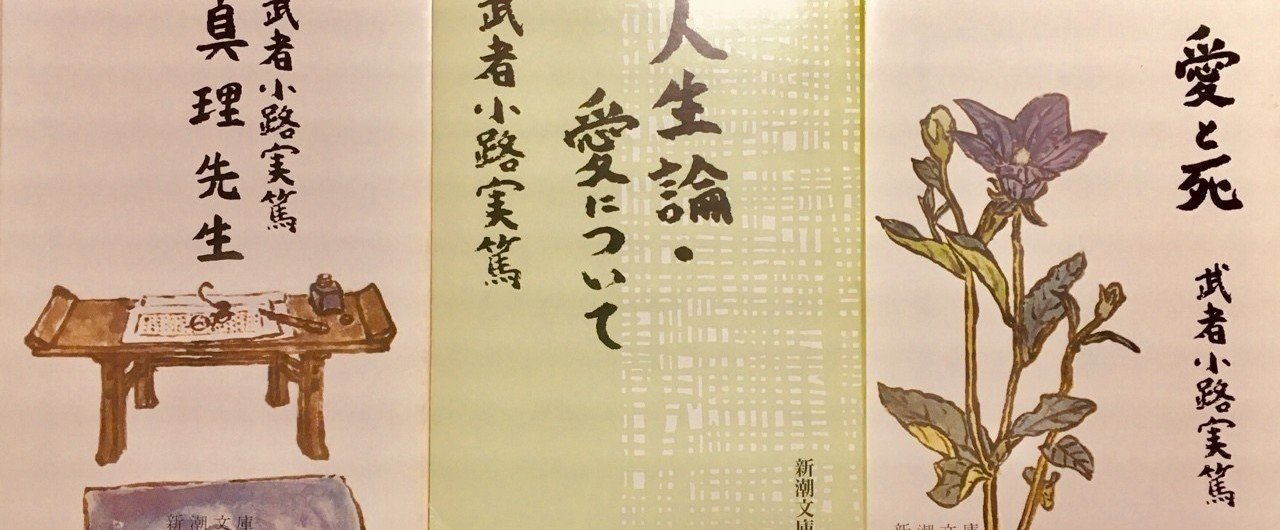 武者小路実篤
真理先生
新潮文庫
武者小路実篤
人生論・
愛について
新潮文庫
愛と死
武者小路実篤
新潮文庫